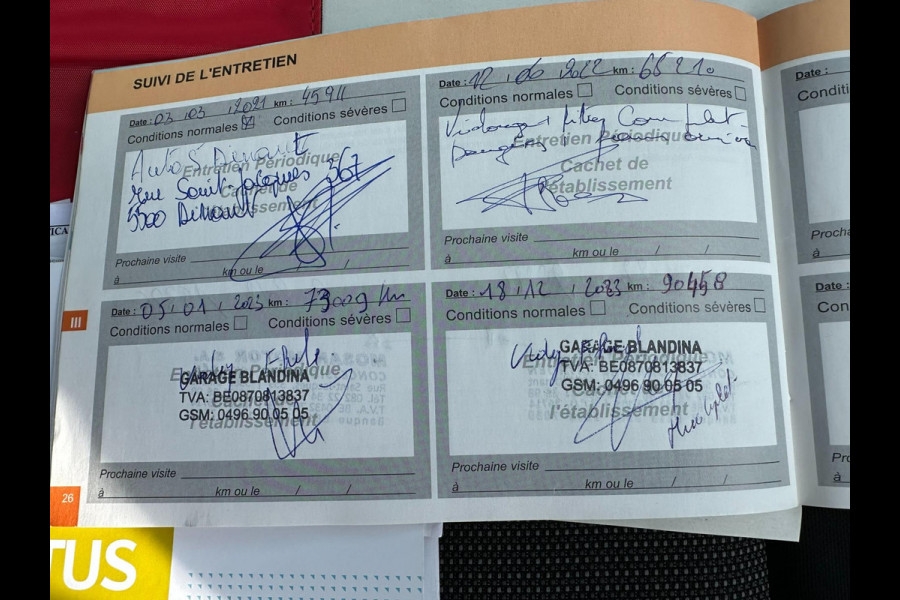 SUIVI DE L'ENTRETIEN
Date : 03 / 03 / 2021 km : 45911
Conditions normales Conditions sévères
Entretien Périodique
Rue Saint-Jacques 367
5500 Dinant
Prochaine visite
à km ou le / /
Date : 12 / 06 / 2022 km : 66210
Conditions normales Conditions sévères
Entretien Périodique
Cachet de
l'établissement
Prochaine visite
à km ou le / /
Date : 05 / 01 / 2023 km : 73009 km
Conditions normales Conditions sévères
GARAGE BLANDINA
TVA: BE0870813837
GSM: 0496 90 05 05
l'établissement
Prochaine visite
à km ou le / /
Date : 18 / 12 / 2023 km : 90458
Conditions normales Conditions sévères
GARAGE BLANDINA
Entretien Périodique
TVA: BE0870813837
GSM: 0496 90 05 05
l'établissement
Prochaine visite
à km ou le / /
III
26
Date :
Conditi
Procha
à
Date :
Con
Pro
à
TUS
ICA